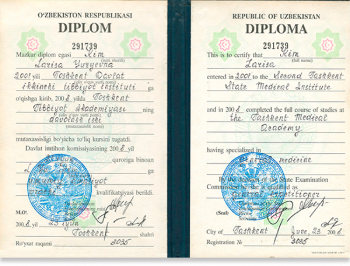 O'ZBEKISTON RESPUBLIKASI
DIPLOM
291739
Mazkur diplom egasi Kim
Larisa Yuryevna
2001 yil Toshkent Davlat
ikkinchi tibbiyot instituti ga
o'qishga kirib, 2008 yilda Toshkent
Tibbiyot akademiyasi ning
davolash ishi
mutaxassisligi bo'yicha to'liq kursini tugatdi.
Davlat imtihon komissiyasining 2008 yil
qaroriga binoan
kvalifikatsiyasi berildi.
M.O'.
Toshkent shahri
Ro'yxat raqami 3035
REPUBLIC OF UZBEKISTAN
DIPLOMA
291739
This is to certify that Kim
Larisa
entered in 2001 to the Second Tashkent
State Medical Institute
and in 2008 completed the full course of studies at
the Tashkent Medical
Academy
having specialised in
medicine
By the decision of the State Examination
Commission
General practitioner
(Seal)
City of Tashkent June 23 2008
Registration № 3035